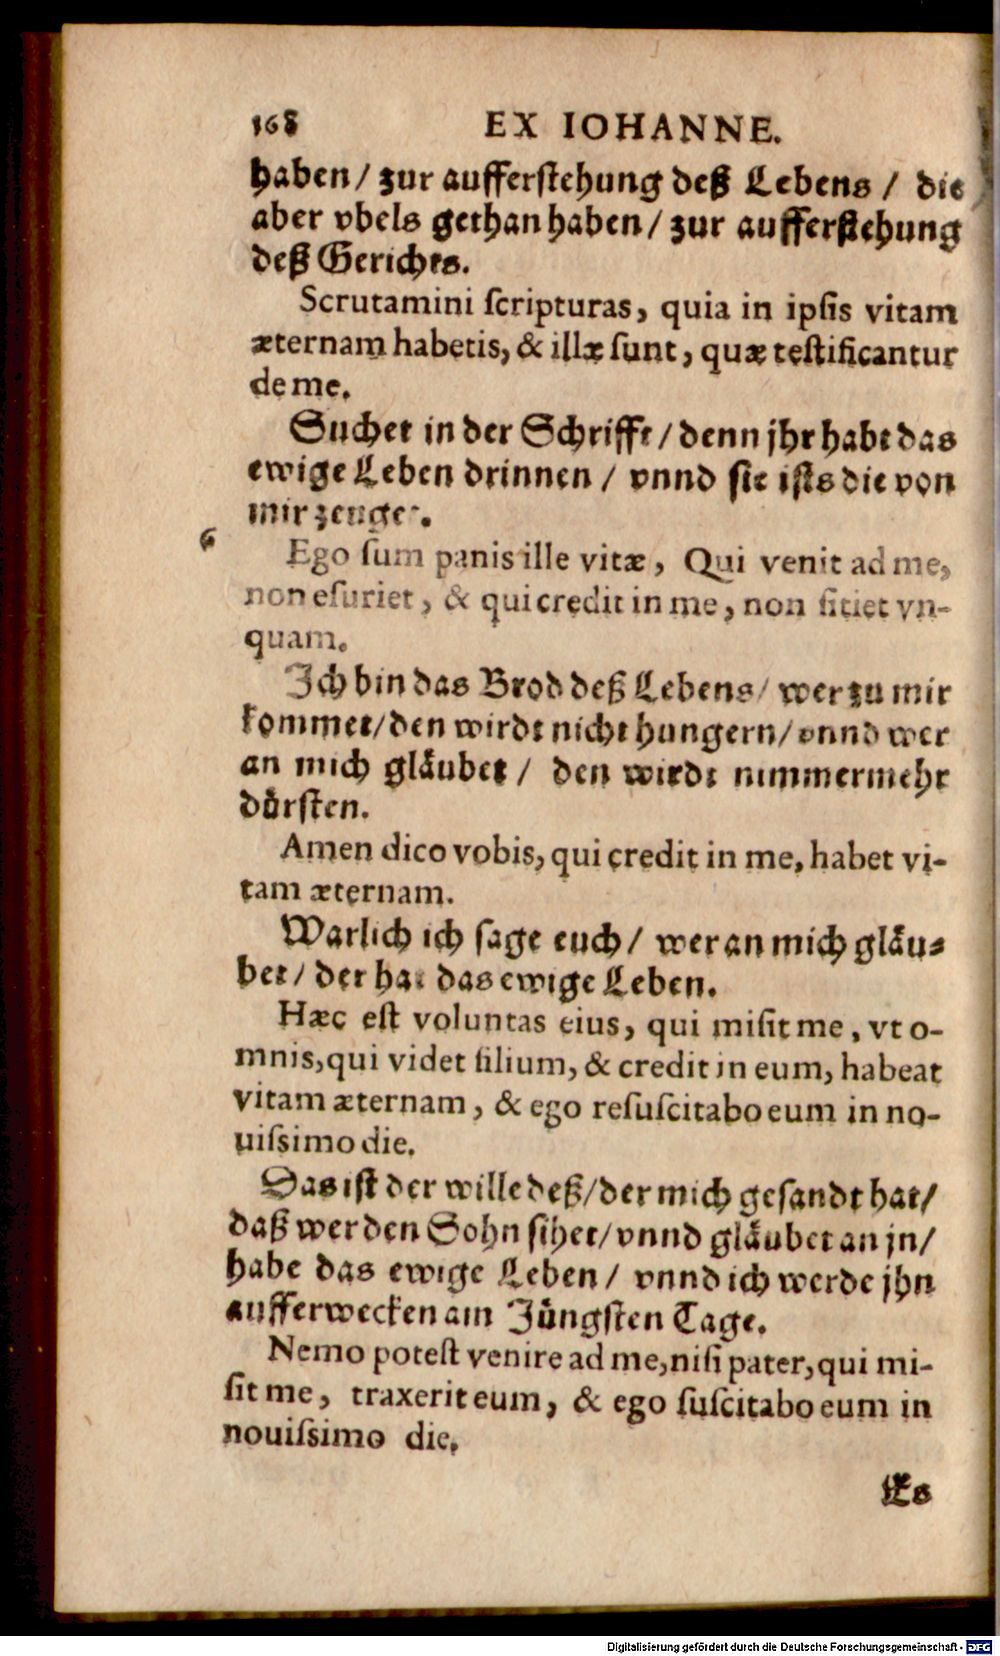 168 EX IOHANNE.
haben / zur aufferstehung deß Lebens / die
aber vbels gethan haben / zur aufferstehung
deß Gerichts.
Scrutamini ſcripturas, quia in ipſis vitam
æternam habetis, & illæ ſunt, quæ teſtificantur
de me.
Suchet in der Schrifft / denn jhr habt das
ewige Leben drinnen / vnnd sie ists die von
mir zeuget.
6
Ego ſum panis ille vitæ, Qui venit ad me,
non eſuriet, & qui credit in me, non ſitiet vn-
quam.
Ich bin das Brod deß Lebens / wer zu mir
kommet / den wirdt nicht hungern / vnnd wer
an mich gläubet / den wirdt nimmermehr
dürsten.
Amen dico vobis, qui credit in me, habet vi-
tam æternam.
Warlich ich sage euch / wer an mich gläu-
bet / der hat das ewige Leben.
Hæc eſt voluntas eius, qui miſit me, vt o-
mnis, qui videt filium, & credit in eum, habeat
vitam æternam, & ego reſuſcitabo eum in no-
uiſsimo die.
Das ist der wille deß / der mich gesandt hat /
daß wer den Sohn sihet / vnnd gläubet an jn /
habe das ewige Leben / vnnd ich werde jhn
aufferwecken am Jüngsten Tage.
Nemo poteſt venire ad me, niſi pater, qui mi-
ſit me, traxerit eum, & ego ſuſcitabo eum in
nouiſsimo die.
Es
Digitalisierung gefördert durch die Deutsche Forschungsgemeinschaft - DFG